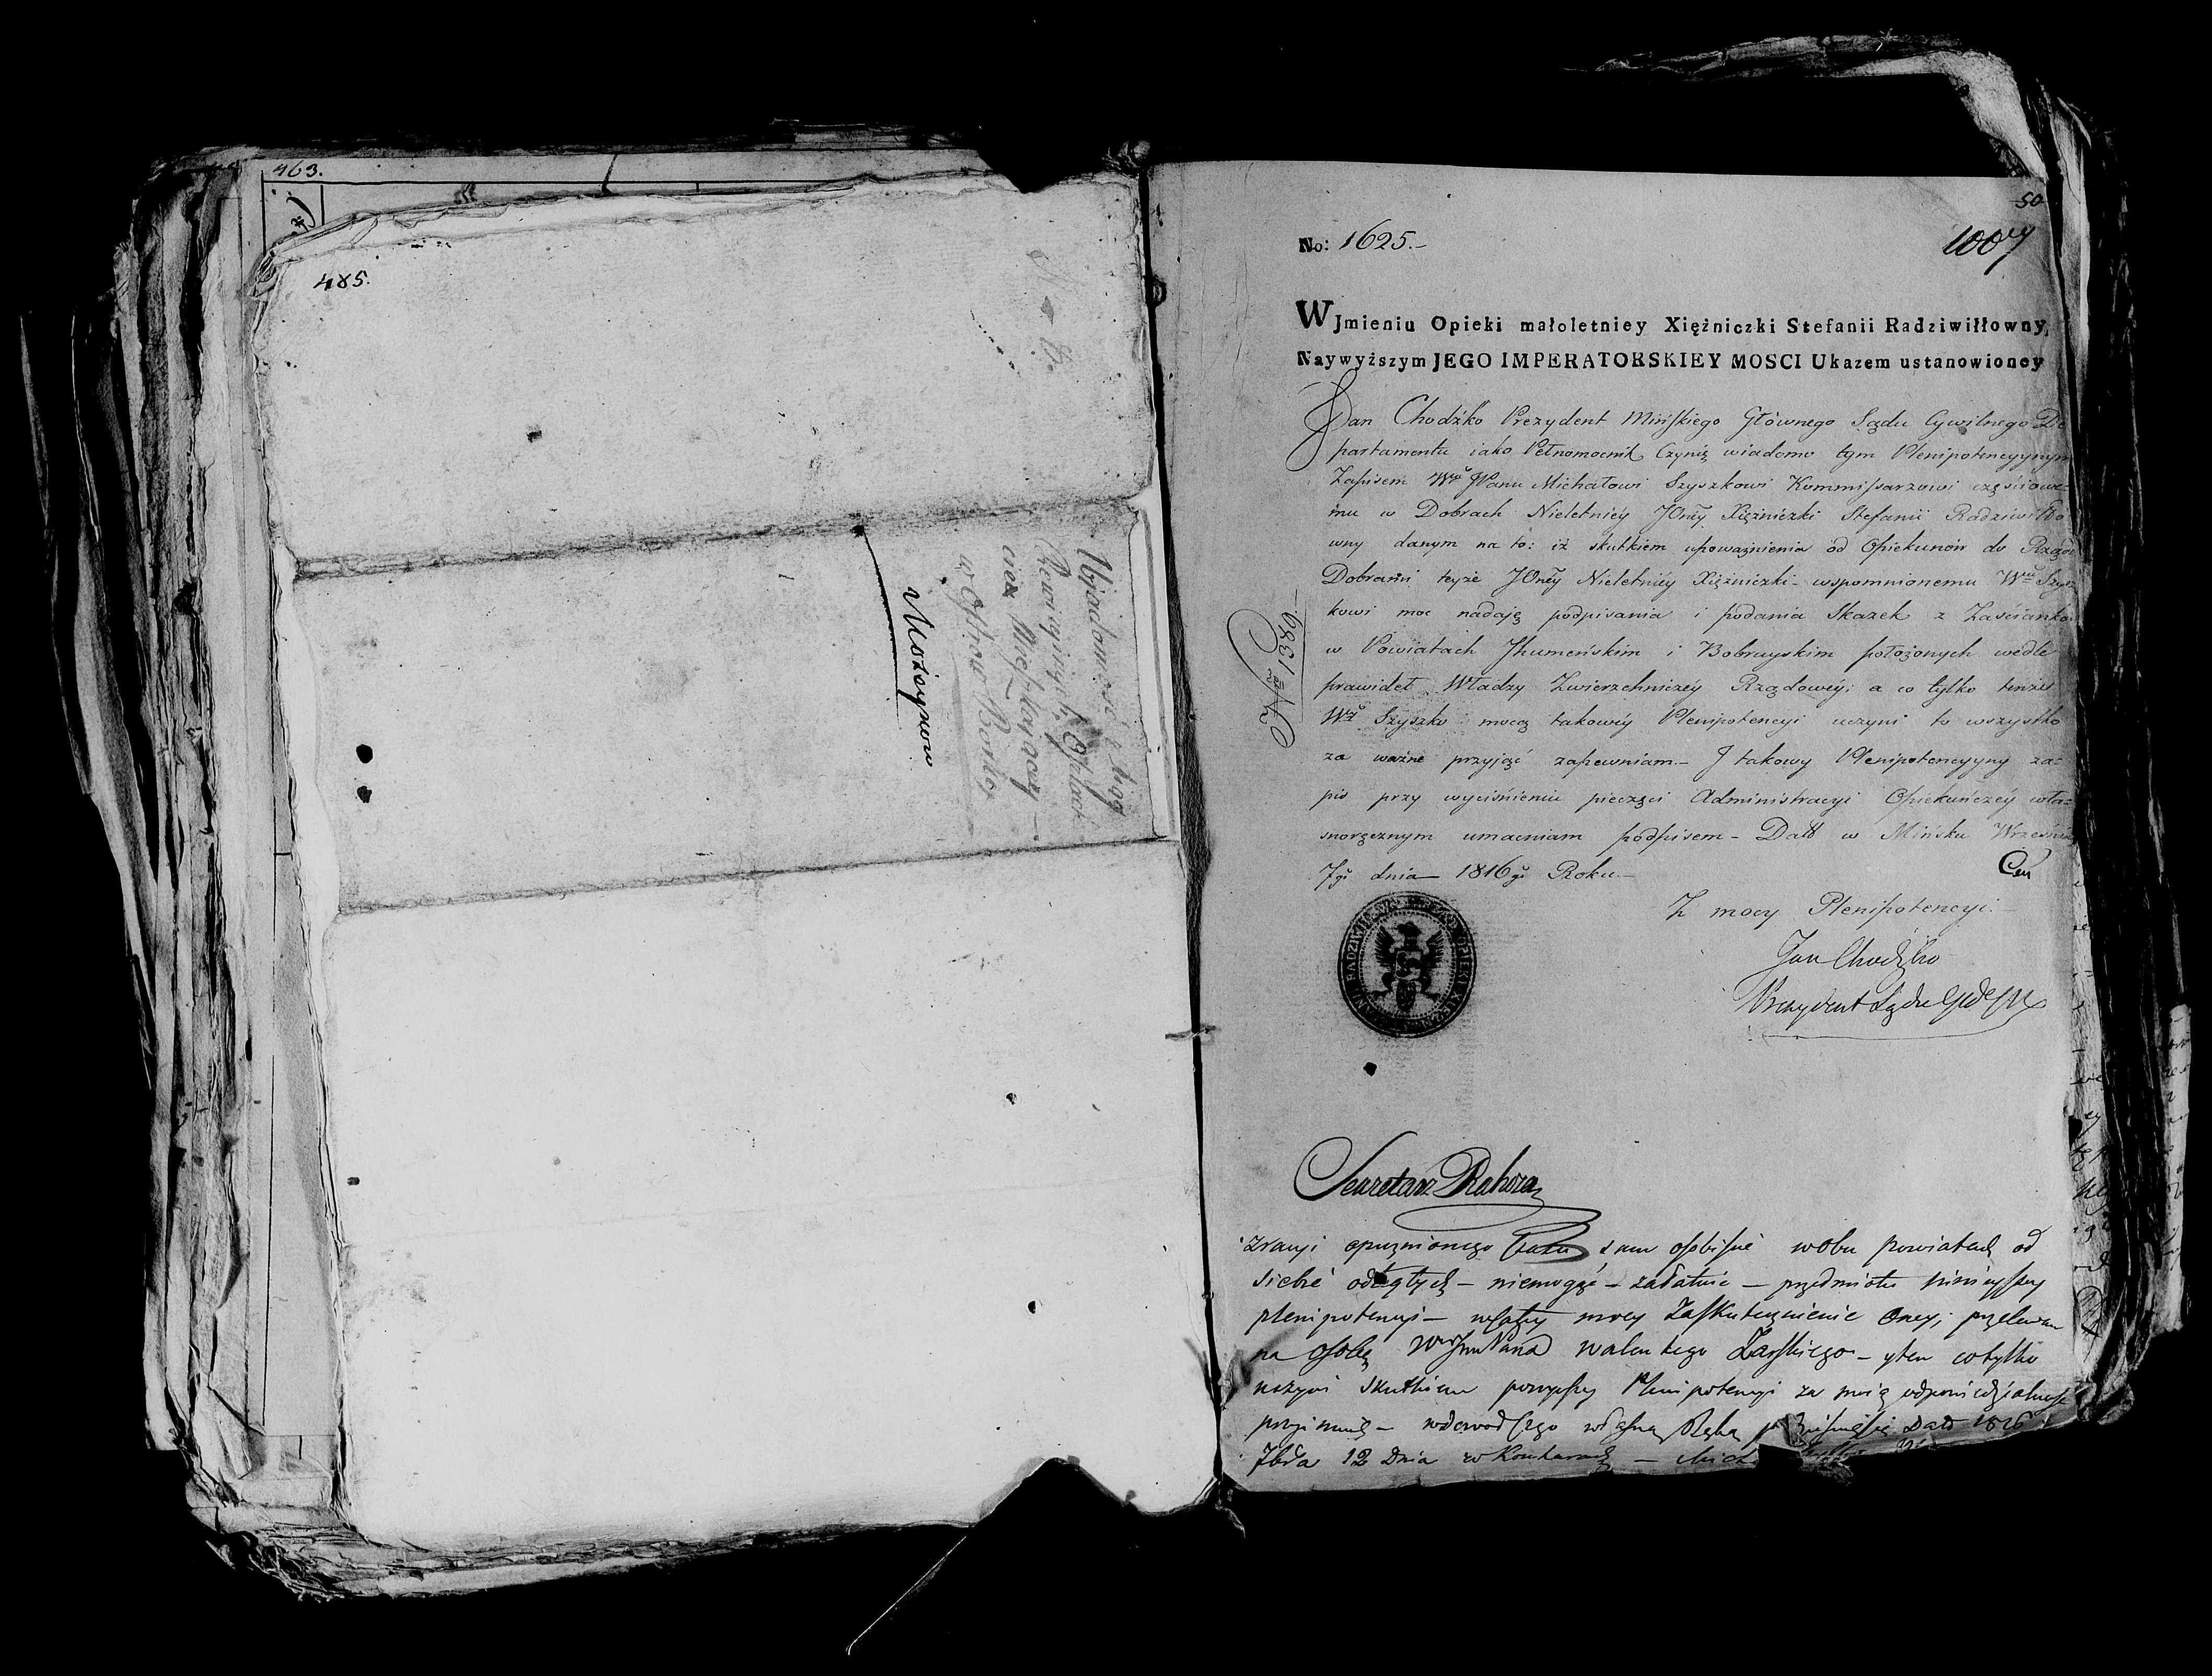 463.
485.
N 8.
Wiadomość z xiąg
Rewizyinych
w Ostrow
Mozoyzow
50
1007
No: 1625.–
W Jmieniu Opieki małoletniey Xiężniczki Stefanii Radziwiłłowny,
Naywyższym JEGO IMPERATORSKIEY MOSCI Ukazem ustanowioney
Jan Chodźko Prezydent Mińskiego Głównego Sądu Cywilnego De
partamentu iako Pełnomocnik Czynię wiadomo tym Plenipotencyynym
Zapisem Wmu JPanu Michałowi Szyszkowi Kommissarzowi częściowe=
mu w Dobrach Nieletniéy JOnéy Xiężniczki Stefanii Radziwiłło
wny danym na to: iż skutkiem upoważnienia od Opiekunów do Rządu
Dobrami teyże JOnéy Nieletniéy Xiężniczki – wspomnionemu Wmu Szysz
kowi moc nadaję podpisania i podania Skazek z Zaścianków
w Powiatach Jhumeńskim i Bobruyskim położonych wedle
prawideł Władzy Zwierzchniczéy Rządowéy; a co tylko tenże
Wny Szyszko mocą takowéy Plenipotencyi uczyni to wszystko
za ważne przyjąć zapewniam.– J takowy Plenipotencyyny za=
pis przy wyciśnieniu pieczęci Administracyi Opiekuńczéy wła=
snoręcznym umacniam podpisem – Datt w Mińsku Września
7go dnia 1816go Roku.–
N 1389.–
Z mocy Plenipotencyi.–
Jan Chodźko
Prezydent Sądu
Sekretarz Rahoza
zracyi opuznionego Czasu sam osobiście wobu powiatach od
siebie odległych – niemogąc – załatwić – przedmiotu ninieyszey
plenipotencyi – zaskutecznienie oney, przelewam
na osobę Wgo Jmć Pana Walentego Zarskiego – y ten cotylko
uczyni skutkiem powyższey Plenipotencyi za moię odpowiedzialność
przyimuię – wdowod czego własną Ręką Datt 1816
7bra 12 Dnia w